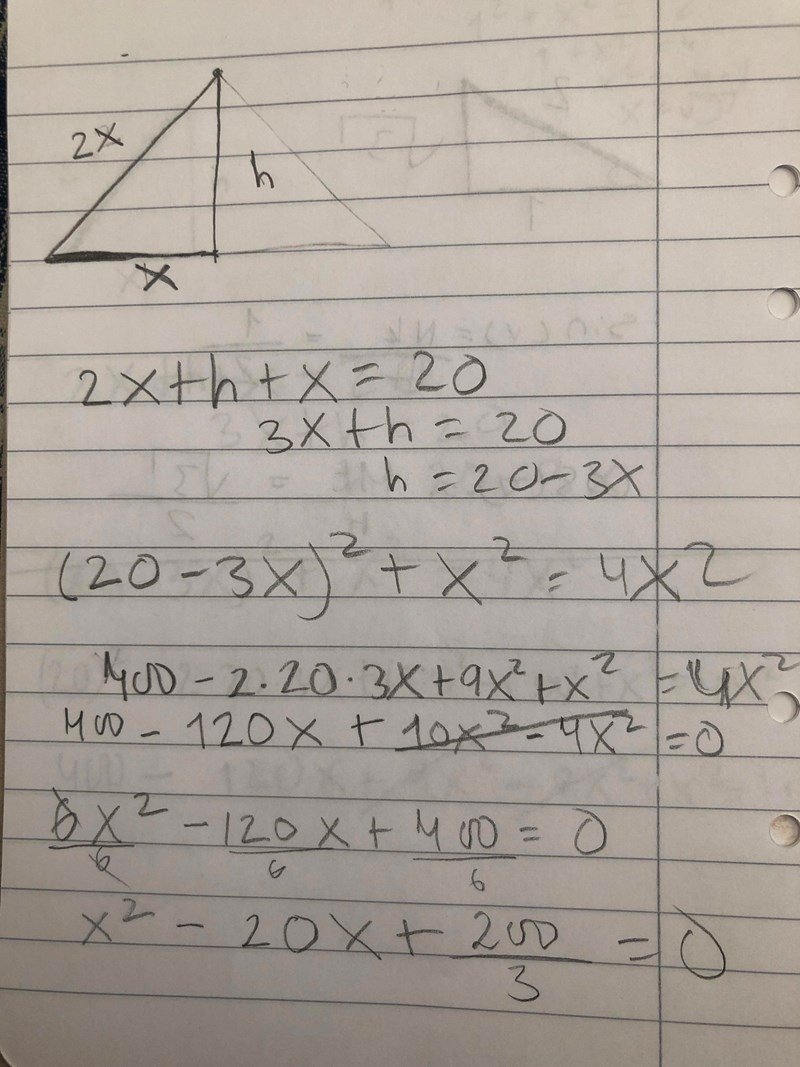 2x
h
x
2x+h+x=20
3x+h=20
h=20-3x
(20-3x)²+x²=4x²
400-2·20·3x+9x²+x²=4x²
400-120x+10x²-4x²=0
6x²/6-120x/6+400/6=0
x²-20x+200/3=0